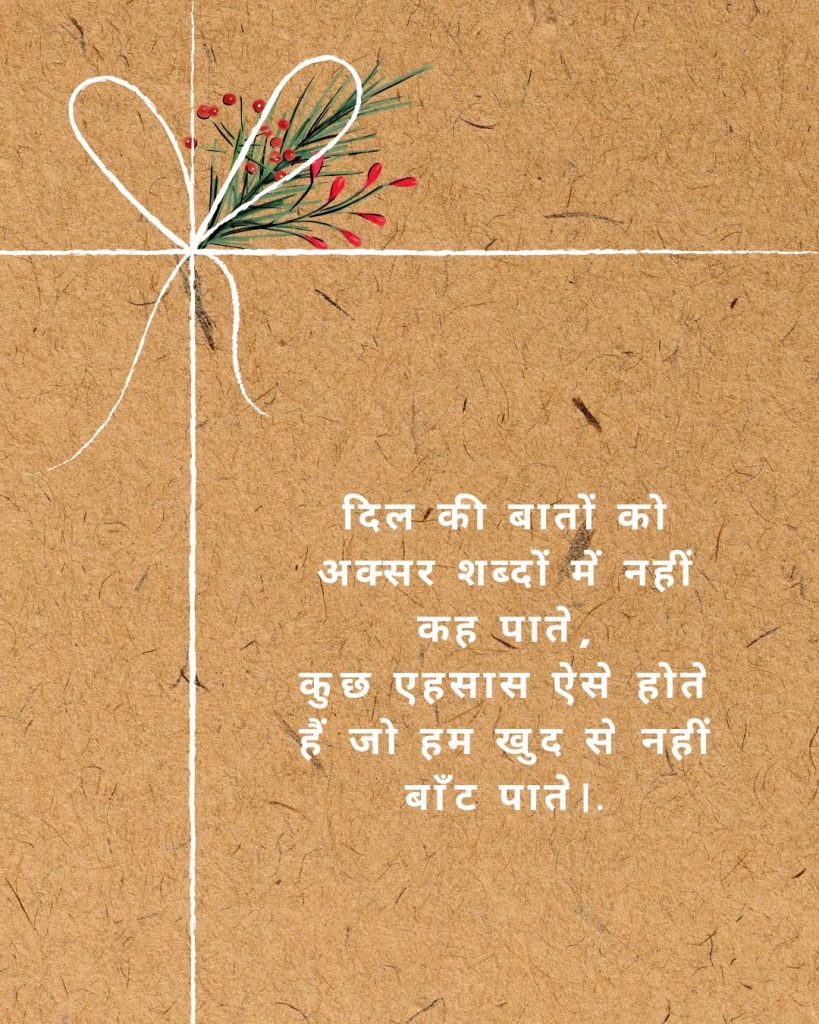 दिल की बातों को
अक्सर शब्दों में नहीं
कह पाते,
कुछ एहसास ऐसे होते
हैं जो हम खुद से नहीं
बाँट पाते।.